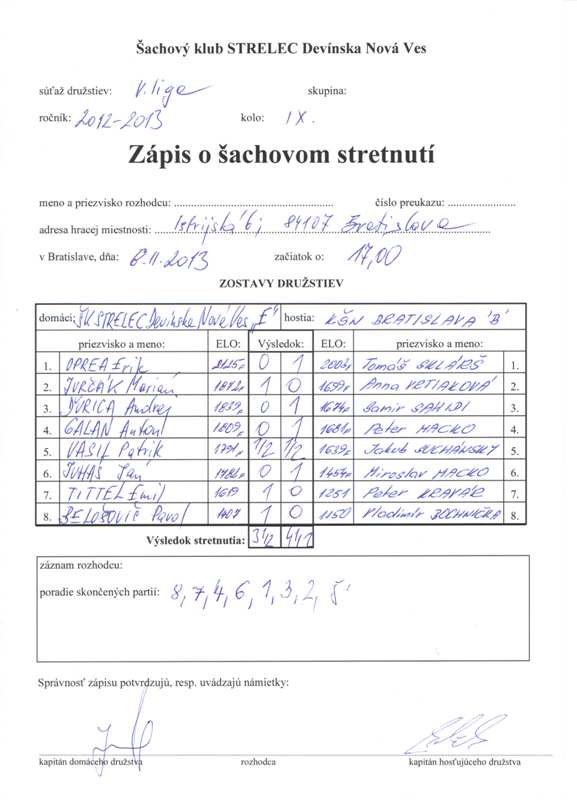 Šachový klub STRELEC Devínska Nová Ves
súťaž družstiev: V. liga skupina:
ročník: 2012-2013 kolo: IX.
Zápis o šachovom stretnutí
meno a priezvisko rozhodcu: číslo preukazu:
adresa hracej miestnosti: Istrijská 6; 84107 Bratislava
v Bratislave, dňa: 8.11.2013 začiatok o: 17,00
ZOSTAVY DRUŽSTIEV
domáci: ŠK STRELEC Devínska Nová Ves „E“ hostia: KŠN BRATISLAVA 'B'
priezvisko a meno: ELO: Výsledok: ELO: priezvisko a meno:
1. OPREA Erik 0 1 Tomáš 1.
2. JURČÁK Marián 1842 1 0 1699 Anna 2.
3. ĎURICA Andrej 1839 0 1 1674 Samir SAHLDI 3.
4. GALAN Anton 1809 0 1 1681 Peter MACKO 4.
5. VASIĽ Patrik 1791 1/2 1/2 1639 Jakub SUCHÁNSKY 5.
6. JUHÁS Ján 0 1 1454 Miroslav MACKO 6.
7. TITTEL Emil 1619 1 0 1251 Peter KRAVÁR 7.
8. BELOŠOVIČ Pavol 1 0 1150 Vladimír BOCHNIČKA 8.
Výsledok stretnutia: 3 1/2 4 1/2
záznam rozhodcu:
poradie skončených partií: 8, 7, 4, 6, 1, 3, 2, 5
Správnosť zápisu potvrdzujú, resp. uvádzajú námietky:
kapitán domáceho družstva rozhodca kapitán hosťujúceho družstva